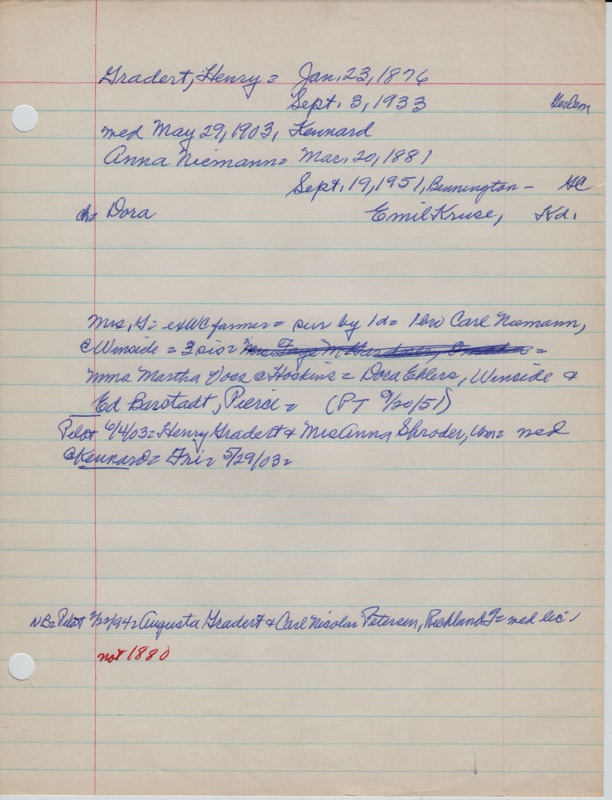 Gradert, Henry = Jan. 23, 1876
Sept. 3, 1933
med May 29, 1903, Kennard
Anna Niemann = Mar. 20, 1881
Sept. 19, 1951, Bennington - HC
ch = Dora Emil Kruse, Kd.
Mrs. G = ex WC farmer = sur by 1d = 1 bro Carl Niemann,
@ Winside = 3 sis =
Mmes Martha Voss @ Hoskins = Dora Ehlers, Winside &
Ed Barstadt, Pierce = (PT 9/20/51)
Pilot 6/4/03 = Henry Gradert & Mrs Anna Shroder, Wn = med
@ Kennard = Fri = 5/29/03 =
NB = Pilot /94 = Augusta Gradert & Carl Nicolai Petersen, Richland = med lic
not 1880